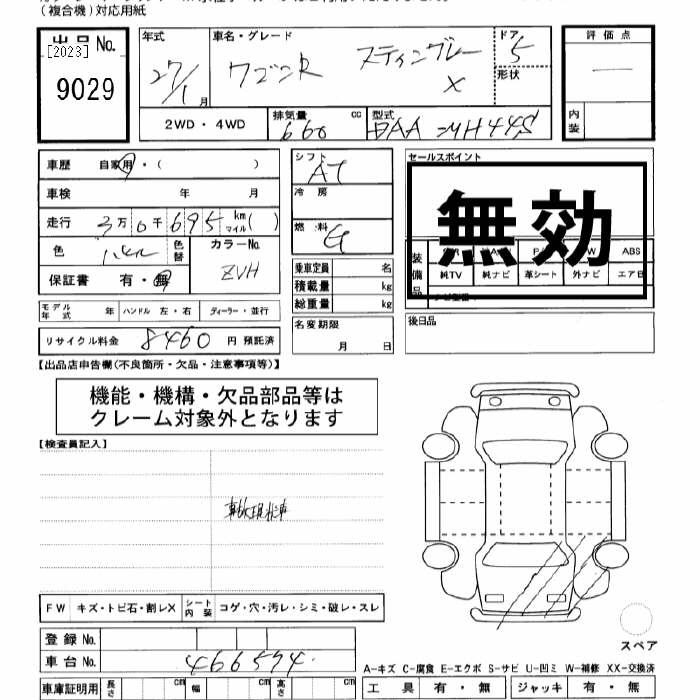 (複合機)対応用紙
出品No.
[2023]
9029
年式 車名・グレード ドア 評価点
27/1月 ワゴンR スティングレー X 5 形状 —
2WD・4WD 排気量 660 cc 型式 DAA-MH44S 内装
車歴 自家用・( )
シフト AT セールスポイント
車検 年 月
冷房
無効
走行 3万0千695km( )マイル
燃料 G
色 パール 色替 カラーNo. ZVH
装備品 ABS
純TV 純ナビ 革シート 外ナビ エアB
保証書 有・無
乗車定員 名
積載量 kg
総重量 kg
モデル年式 年 ハンドル 左・右 ディーラー・並行
名変期限 月 日
後日品
リサイクル料金 8460 円 預託済
【出品店申告欄(不良箇所・欠品・注意事項等)】
機能・機構・欠品部品等は
クレーム対象外となります
【検査員記入】
事故現状車
FW キズ・トビ石・割レX シート内装 コゲ・穴・汚レ・シミ・破レ・スレ
登録No.
スペア
車台No. 466574
A-キズ C-腐食 E-エクボ S-サビ U-凹ミ W-補修 XX-交換済
車庫証明用 長さ cm 幅 cm 高さ cm 工具 有・無 ジャッキ 有・無